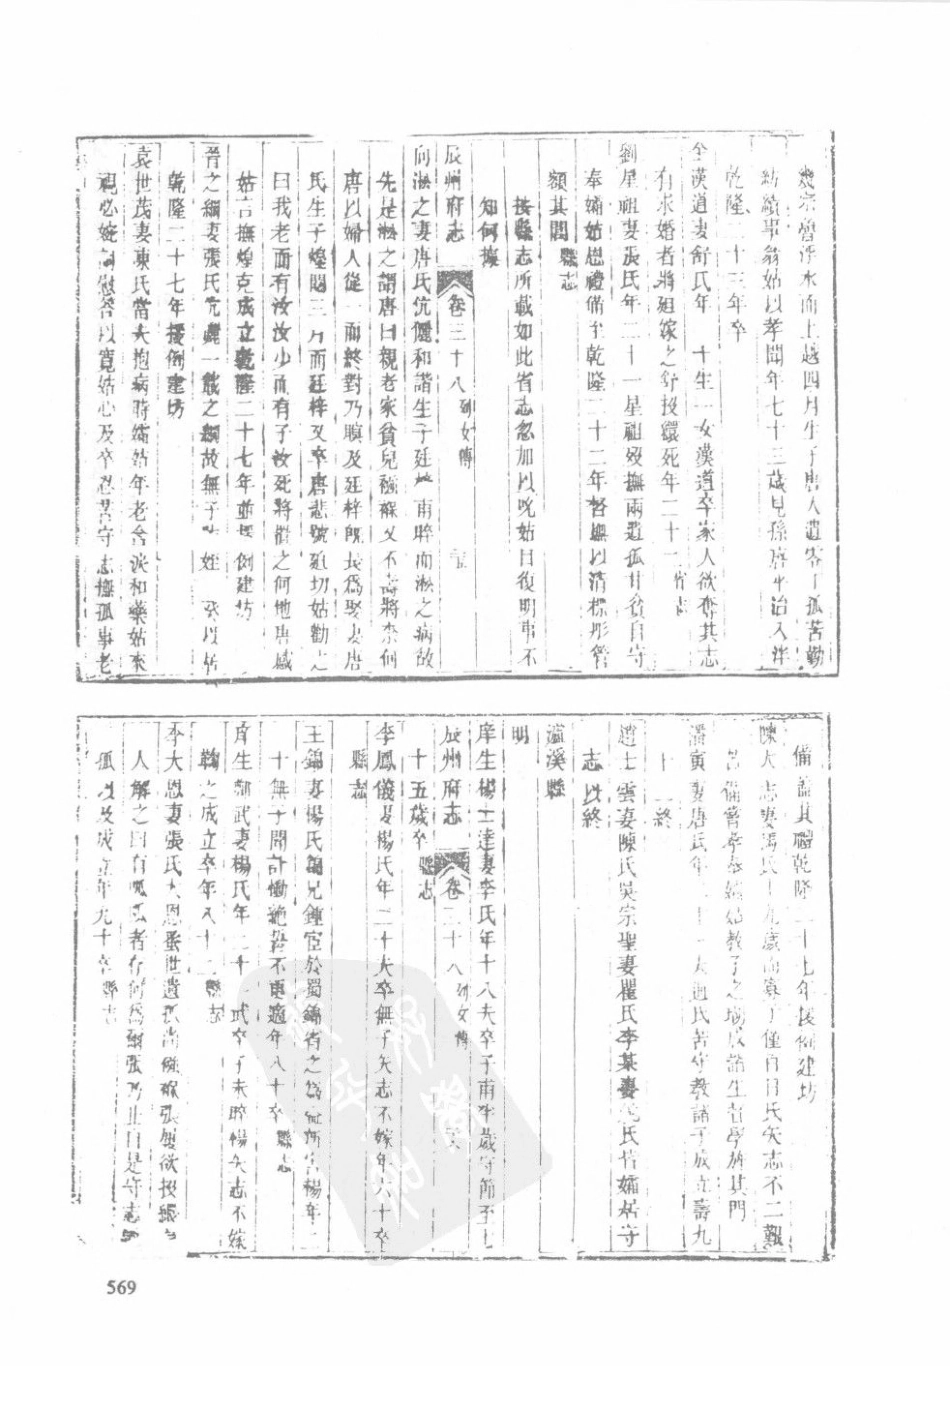 幾宗曾浮水而上越四月生子唐人遺零丁孤苦勤
紡績事翁姑以孝聞年七十三歲見孫唐平治入泮
乾隆二十三年卒
全漢道妻舒氏年 十生一女漢道卒家人欲奪其志
有求婚者將迎嫁之舒投繯死年二十一省志
劉星祖妻張氏年二十一星祖歿撫兩遺孤甘貧自守
奉孀姑恩禮備至乾隆二十二年督撫以清標彤管
額其閭縣志
按縣志所載如此省志忽加以晩姑目復明事不
知何據
辰州府志 卷三十八列女傳
向淞之妻唐氏伉儷和諧生子廷梓甫晬而淞之病故
先是淞之謂唐曰親老家貧兒襁褓又不壽將奈何
唐以婦人從一而終對乃瞑及廷梓旣長爲娶妻唐
氏生子煌閱三月而廷梓又卒唐悲號廹切姑勸之
曰我老而有汝汝少而有子汝死將措之何地唐感
姑言撫煌克成立乾隆二十七年並援例建坊
晉之綱妻張氏伉儷一載之綱故無子 姪 承以居
乾隆二十七年援例建坊
袁世茂妻東氏當夫抱病時孀姑年老含淚和藥姑來
視必婉詞慰答以寬姑心及卒忍苦守志撫孤事老
備盡其禮乾隆二十七年援例建坊
陳大志妻馮氏十九歲而寡子僅百日氏矢志不二艱
苦備嘗孝奉孀姑敎子之瑒成諸生省學旌其門
潘寅妻唐氏年二十一夫逝氏苦守敎諸子成立壽九
十一終
趙士雲妻陳氏吳宗聖妻瞿氏李某妻 氏皆孀居守
志以終
瀘溪縣
明
庠生楊士達妻李氏年十八夫卒子甫半歲守節至七
辰州府志 卷三十八列女傳
十五歲卒縣志
李鳳儀妻楊氏年二十夫卒無子矢志不嫁年六十卒
縣志
王錦妻楊氏錦兄鍾宦於蜀錦省之 於宦所 楊年二
十無子聞訃慟絶誓不再適年八十卒縣志
庠生鄧武妻楊氏年二十 武卒子未晬楊矢志不嫁
鞠之成立卒年八十二縣志
李大恩妻張氏大恩蚤世遺孤尚襁褓張慟欲投繯
人解之曰有呱呱者存何爲爾張乃止自是守志
孤 及成立年九十卒縣志
569